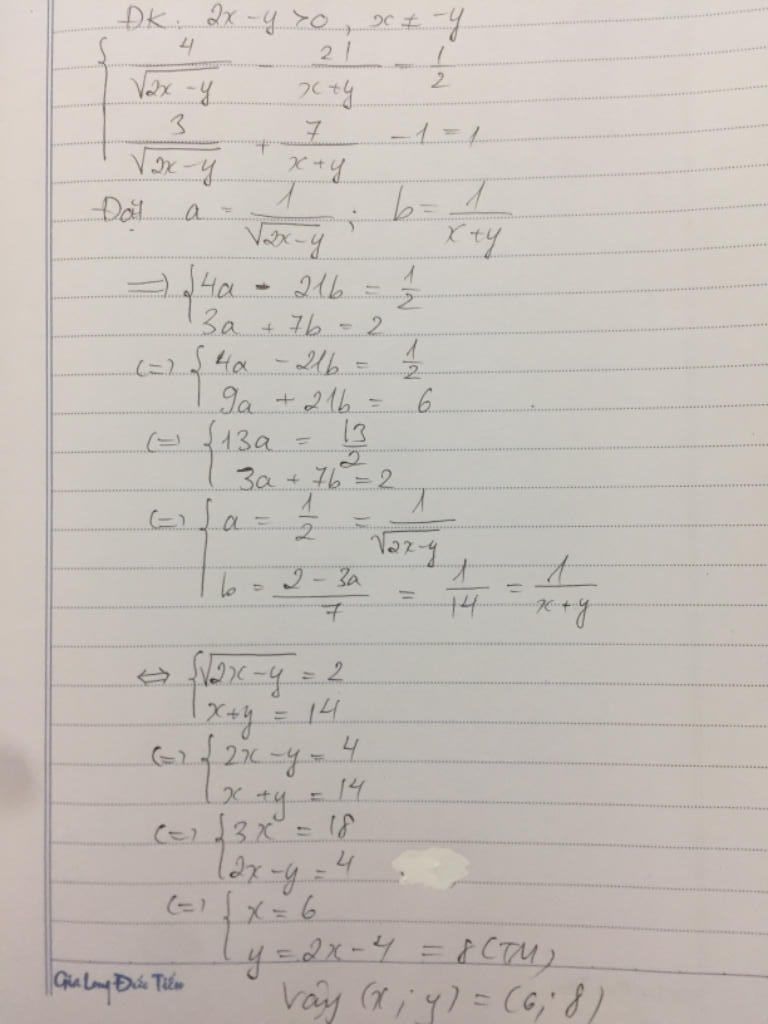 ĐK: 2x-y>0, x ≠ -y
{ 4/√(2x-y) - 21/(x+y) = 1/2
3/√(2x-y) + 7/(x+y) - 1 = 1
Đặt a = 1/√(2x-y); b = 1/(x+y)
=> { 4a - 21b = 1/2
3a + 7b = 2
(=) { 4a - 21b = 1/2
9a + 21b = 6
(=) { 13a = 13/2
3a + 7b = 2
(=) { a = 1/2 = 1/√(2x-y)
b = (2-3a)/7 = 1/14 = 1/(x+y)
⇔ { √(2x-y) = 2
x+y = 14
(=) { 2x-y = 4
x+y = 14
(=) { 3x = 18
2x-y = 4
(=) { x = 6
y = 2x-4 = 8 (TM)
Gia Long Đức Tiến
Vậy (x; y) = (6; 8)